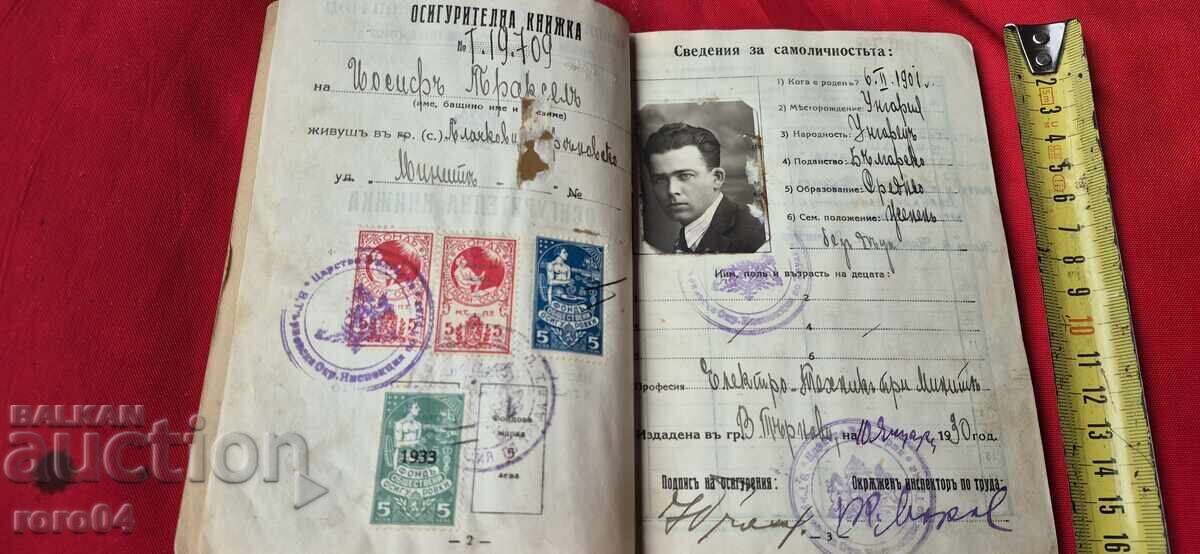 ОСИГУРИТЕЛНА КНИЖКА
№ Т. 19.709
на Иосифъ
(име, бащино име и
живущъ въ гр. (с.)
ул. „ Минитѣ - „ №
2
5 5
5 5
ФОНДЪ ОБЩЕСТВЕНИ ОСИГУРОВКИ
5 5
1933
ФОНДЪ ОБЩЕСТВЕНИ ОСИГУРОВКИ
5 5
Фондова марка
5 лева
— 2 —
Сведения за самоличностьта:
1) Кога е роденъ? 6. II. 1901 г.
2) Мѣсторождение: Унгария
3) Народность: Унгарецъ
4) Поданство: Българско
5) Образование: Средно
6) Сем. положение: Жененъ
без деца
Име, полъ и възрасть на децата:
1 2
5 6
Професия Електро-Техникъ при Минитѣ
Издадена въ гр. В. Търново на 10 Януар. 1930 год.
Подпис на осигурения: Окръженъ инспекторъ по труда:
— 3 —
2 3 4 5 6 7 8 9 10 11 12 13 14 15 16
BALKAN
auction
roro04